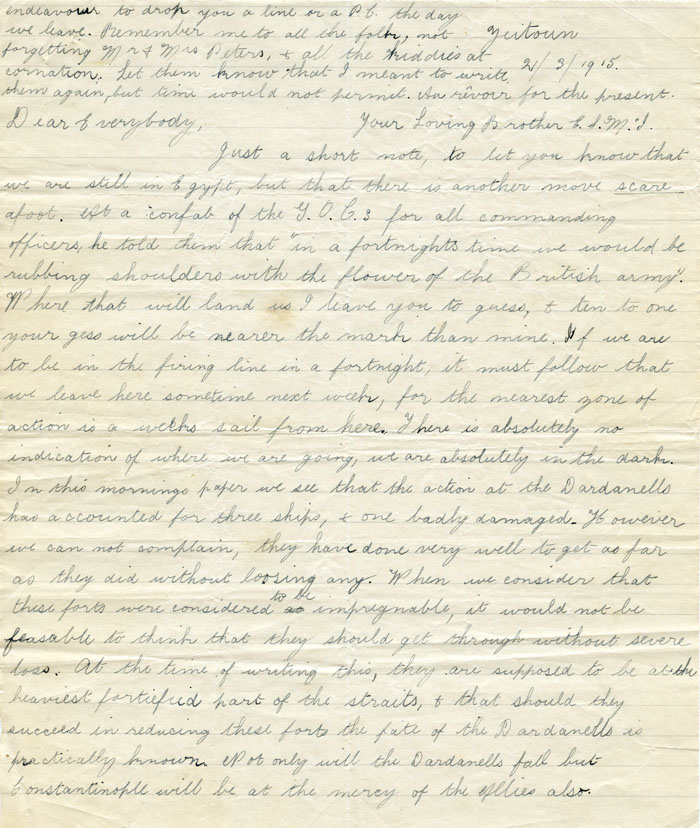 endeavour to drop you a line or a P.C. the day
we leave. Remember me to all the folk, not
forgetting Mr & Mrs Peters, & all the kiddies at
cornation. Let them know that I meant to write
them again, but time would not permit. Au rêvoir for the present.
Your Loving Brother
Zeitoun
21/3/1915.
Dear Everybody,
Just a short note, to let you know that
we are still in Egypt, but that there is another move scare
afoot. At a confab of the G.O.C.s for all commanding
officers, he told them that "in a fortnights time we would be
rubbing shoulders with the flower of the British army".
Where that will land us I leave you to guess, & ten to one
your gess will be nearer the mark than mine. If we are
to be in the firing line in a fortnight, it must follow that
we leave here sometime next week, for the nearest zone of
action is a weeks sail from here. There is absolutely no
indication of where we are going, we are absolutely in the dark.
In this mornings paper we see that the action at the Dardanells
has accounted for three ships, & one badly damaged. However
we can not complain, they have done very well to get as far
as they did without loosing any. When we consider that
these forts were considered to be impregnable, it would not be
feasable to think that they should get through without severe
loss. At the time of writing this, they are supposed to be at the
heaviest fortiefied part of the straits, & that should they
succeed in reducing these forts the fate of the Dardanells is
practically known. Not only will the Dardanells fall but
Constantinople will be at the mercy of the Allies also.